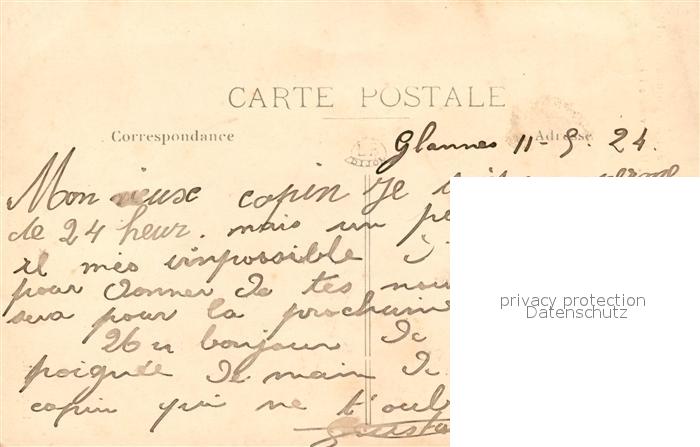 CARTE POSTALE
Correspondance
Adresse
L.V.
DIJON
Glannes 11-9. 24.
Mon vieux copin Je
de 24 heur. mais un pe
il més impossible
pour donner de tes nou
sera pour la prochain
26 u bonjour de
poignée de main de
copin qui ne t'oubl
Gusta
privacy protection
Datenschutz